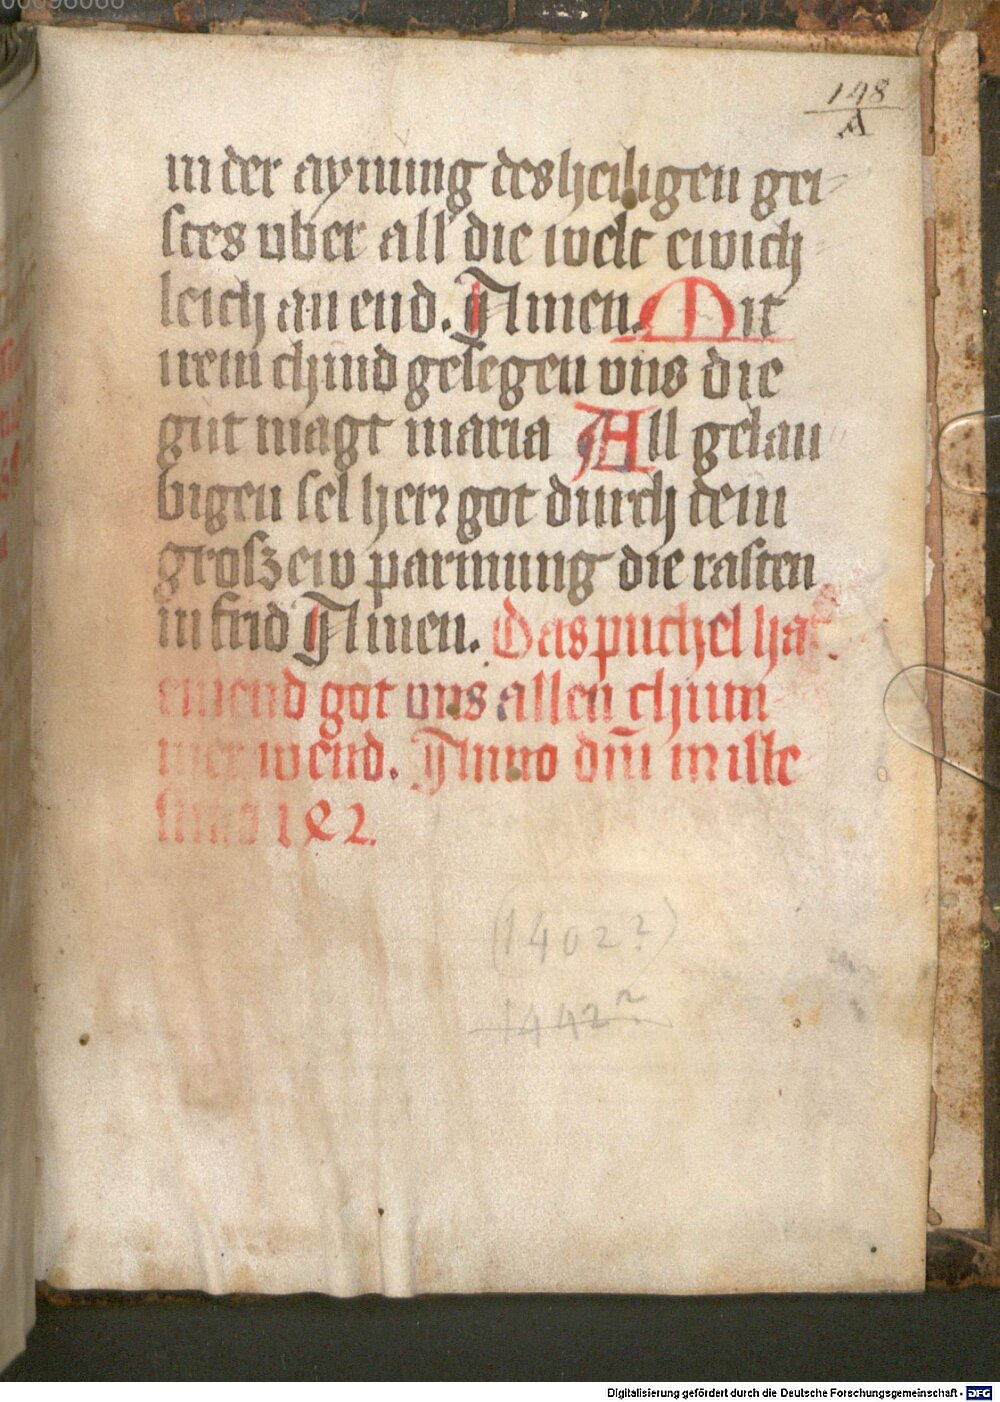 198
A
in der aynung des heiligen gei
stes uber all die welt ewich
leich an end. Amen. Mit
irem chind gesegen uns die
gut magt maria All gelau
bigen sel herr got durch dein
grosz ew parmung die rasten
in frid Amen. Das puchel hat
ein end got uns allen chum
mer wend. Anno dm̄ mille
simo 1 2.
(1402?)
1442?
Digitalisierung gefördert durch die Deutsche Forschungsgemeinschaft - DFG